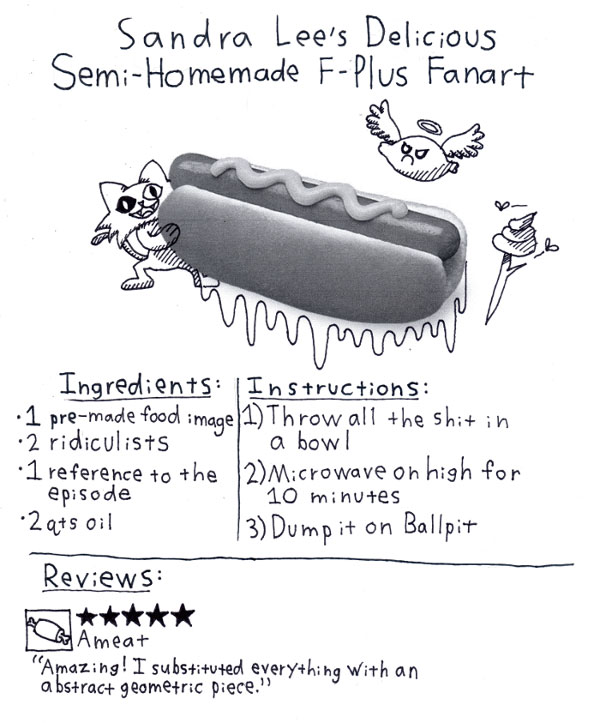 Sandra Lee's Delicious
Semi-Homemade F-Plus Fanart
Ingredients:
·1 pre-made food image
·2 ridiculists
·1 reference to the
episode
·2 qts oil
Instructions:
1) Throw all the shit in
a bowl
2) Microwave on high for
10 minutes
3) Dump it on Ballpit
Reviews:
★★★★★
Ameat
"Amazing! I substituted everything with an
abstract geometric piece."